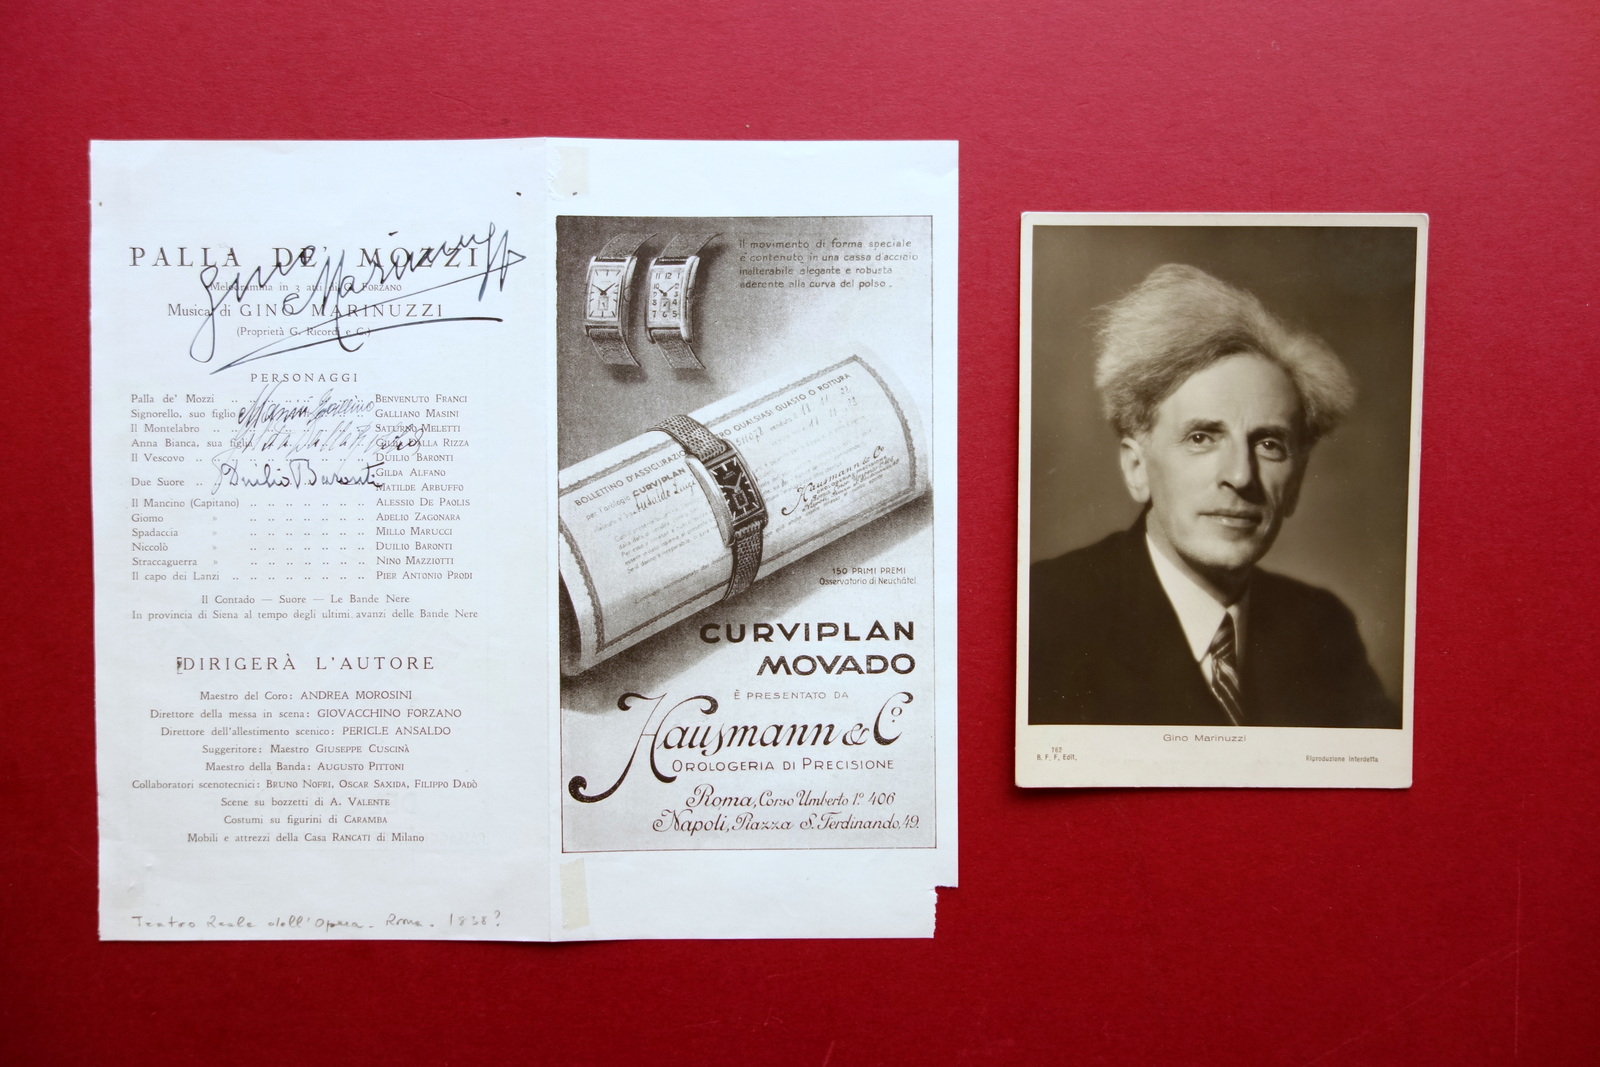 PALLA DE' MOZZI
Melodramma in 3 atti di G. FORZANO
Musica di GINO MARINUZZI
(Proprietà G. Ricordi e C.)
Gino Marinuzzi
PERSONAGGI
Palla de' Mozzi .. .. BENVENUTO FRANCI
Signorello, suo figlio GALLIANO MASINI
Il Montelabro .. .. SATURNO MELETTI
Anna Bianca, sua figlia GILDA DALLA RIZZA
Il Vescovo .. .. DUILIO BARONTI
Due Suore .. GILDA ALFANO
MATILDE ARBUFFO
Masini Galliano
Gilda Dalla Rizza
Duilio Baronti
Il Mancino (Capitano) .. .. .. .. .. .. .. ALESSIO DE PAOLIS
Giomo » .. .. .. .. .. .. .. ADELIO ZAGONARA
Spadaccia » .. .. .. .. .. .. .. MILLO MARUCCI
Niccolò » .. .. .. .. .. .. .. DUILIO BARONTI
Straccaguerra » .. .. .. .. .. .. .. NINO MAZZIOTTI
Il capo dei Lanzi .. .. .. .. .. .. .. .. PIER ANTONIO PRODI
Il Contado — Suore — Le Bande Nere
In provincia di Siena al tempo degli ultimi avanzi delle Bande Nere
DIRIGERÀ L'AUTORE
Maestro del Coro: ANDREA MOROSINI
Direttore della messa in scena: GIOVACCHINO FORZANO
Direttore dell'allestimento scenico: PERICLE ANSALDO
Suggeritore: Maestro GIUSEPPE CUSCINÀ
Maestro della Banda: AUGUSTO PITTONI
Collaboratori scenotecnici: BRUNO NOFRI, OSCAR SAXIDA, FILIPPO DADÒ
Scene su bozzetti di A. VALENTE
Costumi su figurini di CARAMBA
Mobili e attrezzi della Casa RANCATI di Milano
Teatro Reale dell'Opera - Roma - 1938?
Il movimento di forma speciale
è contenuto in una cassa d'acciaio
inalterabile elegante e robusta
aderente alla curva del polso.
BOLLETTINO D'ASSICURAZIONE
RO QUALSIASI GUASTO O ROTTURA
CURVIPLAN
Hausmann & Co
150 PRIMI PREMI
Osservatorio di Neuchâtel
CURVIPLAN
MOVADO
È PRESENTATO DA
Hausmann & Co
OROLOGERIA DI PRECISIONE
Roma, Corso Umberto 1º 406
Napoli, Piazza S. Ferdinando, 49.
Gino Marinuzzi
762
B. F. F. Edit.
Riproduzione interdetta